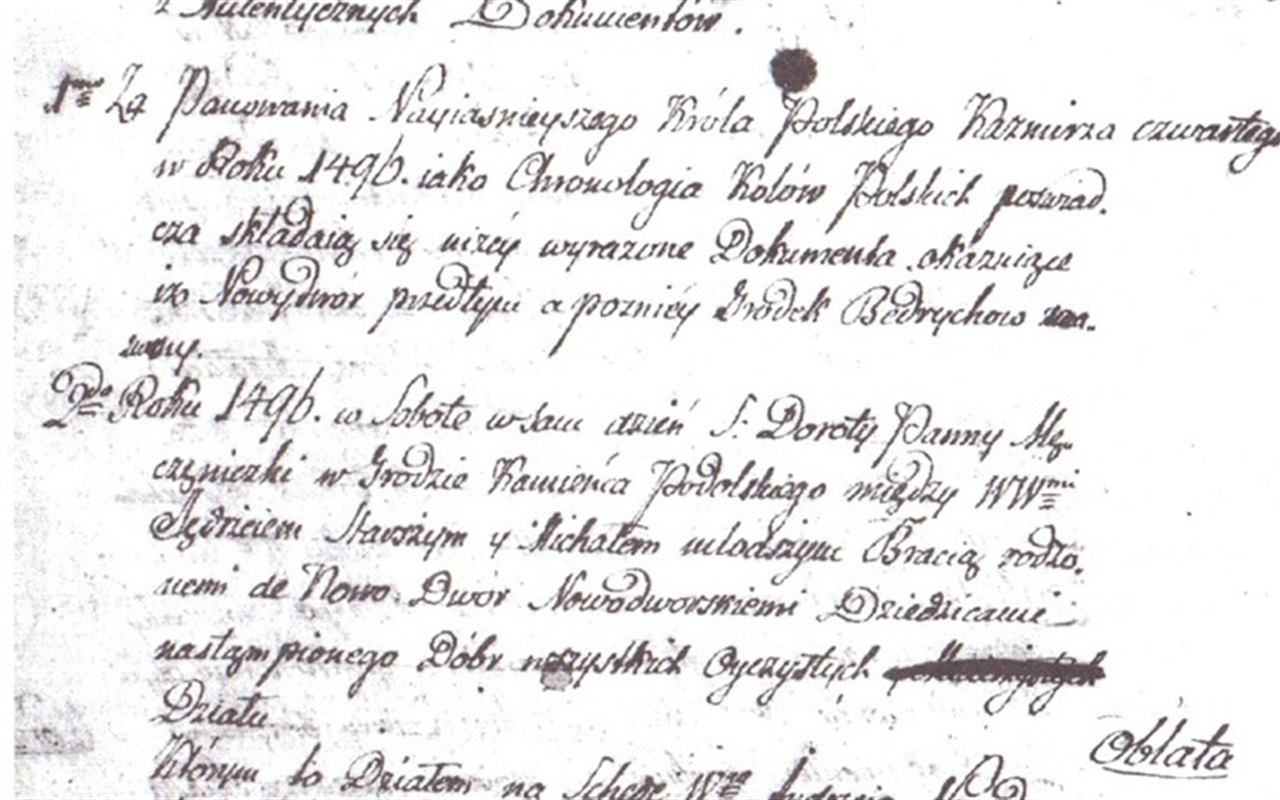 z Autentycznych Dokumentów.
1mo Za Panowania Nayiasnieyszego Króla Polskiego Kazmirza czwartego
w Roku 1496. iako Chronologia Kolów Polskich poswiad.
cza składaią się niżey wyrazone Dokumenta okazuiące
iż Nowydwór przedtym a pozniey Grodek Bedrychow zwa.
2do Roku 1496. w Sobote w sam dzień S: Doroty Panny Mę.
częniczki w Grodzie Kamieńca Podolskiego między WWmi
Jędrzeiem Starszym y Michałem młodszym Bracią rodzo.
nemi de Nowo Dwór Nowodworskiemi Dziedzicami
nastąmpionego Dóbr wszystkich Oyczystych
Działu
Oblata
Którym to Działem na Schedę Wgo